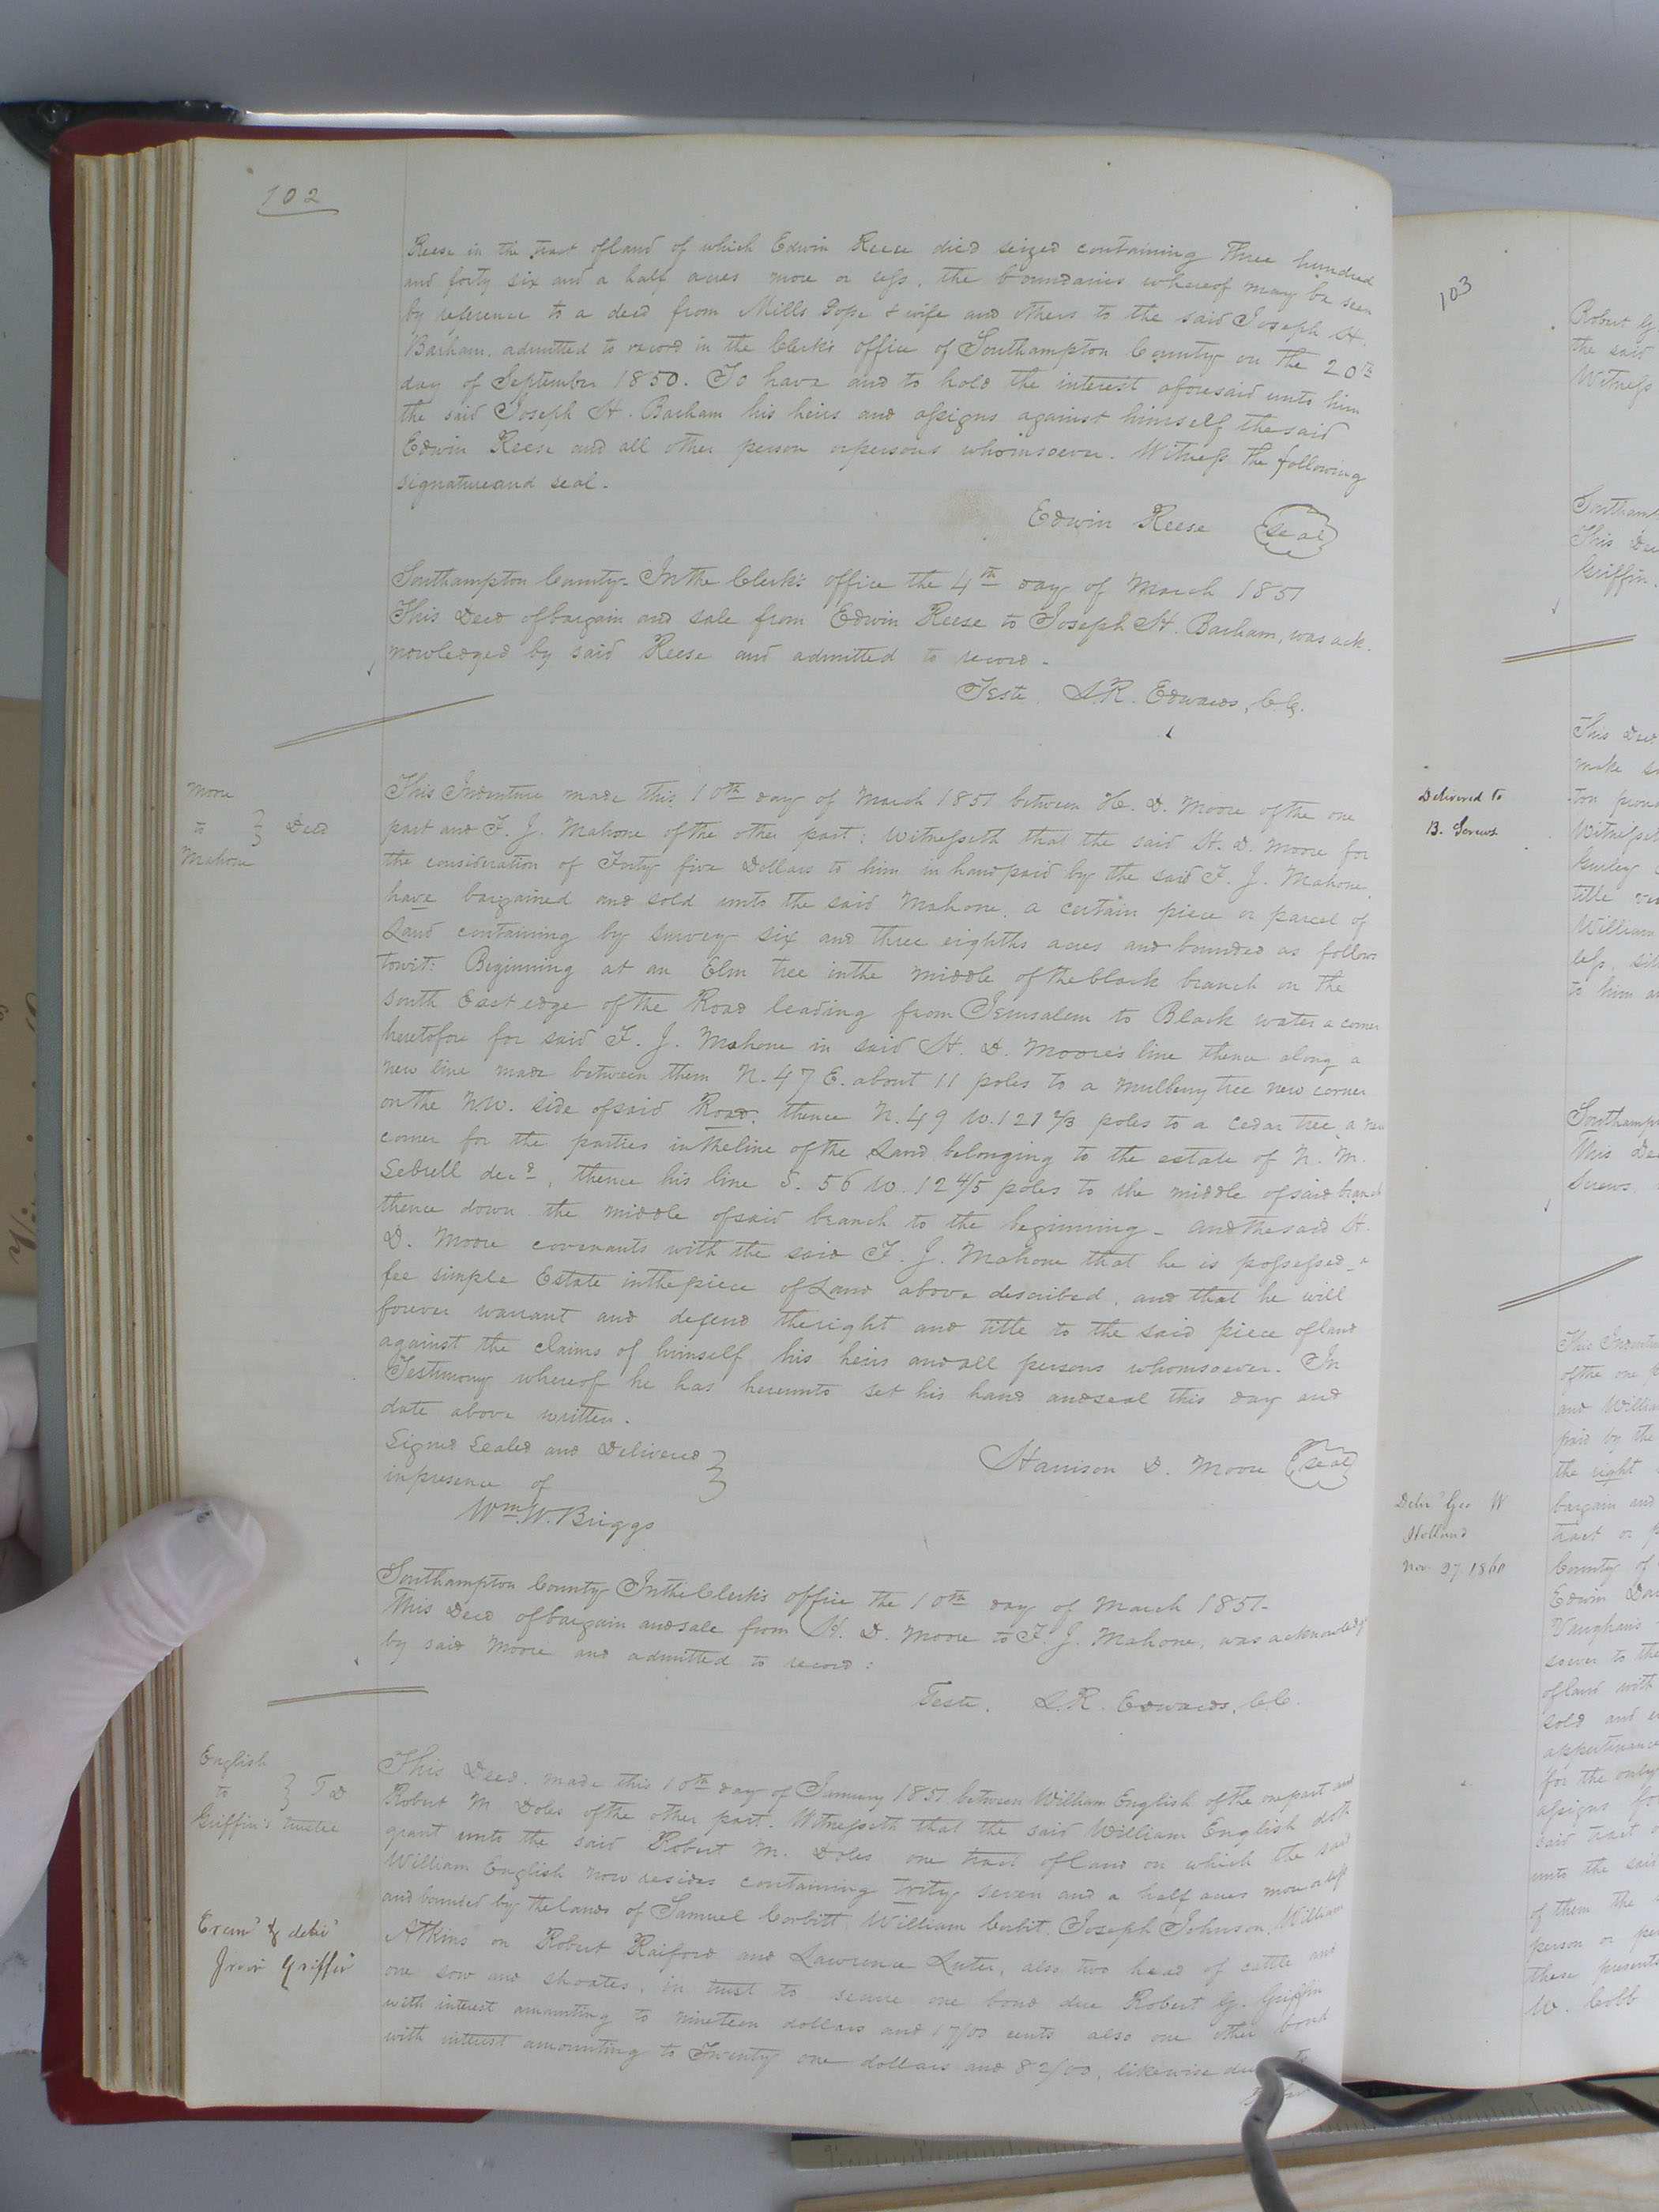 102
Reese in the tract of land of which Edwin Reese died seized containing Three hundred
and forty six and a half acres more or less, the boundaries whereof may be seen
by reference to a deed from Mills Pope & wife and others to the said Joseph H.
Barham, admitted to record in the Clerk's office of Southampton County on the 20th
day of September 1850. To have and to hold the interest aforesaid unto him
the said Joseph H. Barham his heirs and assigns against himself the said
Edwin Reese and all other person or persons whomsoever. Witness the following
signature and seal.
Edwin Reese seal
Southampton County. In the Clerk's office the 4th day of March 1851
This Deed of bargain and sale from Edwin Reese to Joseph H. Barham, was ack-
nowledged by said Reese and admitted to record.
Teste. L.R. Edwards, C.C.
Moore
to } Deed
Mahone
This Indenture made this 10th day of March 1851 between H. D. Moore of the one
part and F. J. Mahone of the other part: Witnesseth that the said H. D. Moore for
the consideration of Forty five Dollars to him in hand paid by the said F. J. Mahone,
have bargained and sold unto the said Mahone, a certain piece or parcel of
Land containing by survey six and three eighths acres and bounded as follows
towit: Beginning at an Elm tree in the middle of the black branch on the
South East edge of the Road leading from Jerusalem to Black water a corner
heretofore for said F. J. Mahone in said H. D. Moore's line thence along a
new line made between them N. 47 E. about 11 poles to a mulberry tree new corner
on the N.W. side of said Road, thence N. 49 W. 121 2/3 poles to a cedar tree, a new
corner for the parties in the line of the Land belonging to the estate of N. M.
Sebrell decd, thence his line S. 56 W. 12 4/5 poles to the middle of said branch
thence down the middle of said branch to the beginning - and the said H.
D. Moore covenants with the said F. J. Mahone that he is possessed a
fee simple Estate in the piece of Land above described, and that he will
forever warrant and defend the right and title to the said piece of land
against the claims of himself his heirs and all persons whomsoever. In
Testimony whereof he has hereunto set his hand and seal this day and
date above written.
Signed Sealed and Delivered }
in presence of
Harrison D. Moore seal
Wm. W. Briggs
Southampton County In the Clerk's office the 10th day of March 1851.
This Deed of bargain and sale from H. D. Moore to F. J. Mahone, was acknowledgd
by said Moore and admitted to record:
Teste. L.R. Edwards, C.C.
English
to } T D
Griffin's trustee
Examd & delivd
Griffin
This Deed, made this 10th day of January 1851 between William English of the one part and
Robert M. Doles of the other part. Witnesseth that the said William English doth
grant unto the said Robert M. Doles one tract of land on which the said
William English now resides containing thirty seven and a half acres more or less
and bounded by the lands of Samuel Corbitt, William Corbit, Joseph Johnson, William
Atkins on Robert Raiford and Lawrence Luter, also two head of cattle and
one sow and shoates, in trust to secure one bond due Robert G. Griffin
with interest amounting to nineteen dollars and 17/00 cents also one other bond
with interest amounting to Twenty one dollars and 82/00, likewise due to
103
Robert G
the said
Witness
Southamp
This De
Griffin.
Delivered to
B. Screws
This Deed
make
Witnesseth
title
William
less
to him
Southamp
This De
Screws
This Indentu
of the one p
and Willia
paid by the
the right
bargain and
tract or p
County of
Edwin
Vaughans
soever to the
of land with
sold and
appurtenance
for the only
assigns fo
said tract
unto the said
of them the
person or per
these presents
W. Cobb
Delivd Geo W
Holland
Nov 27 1860